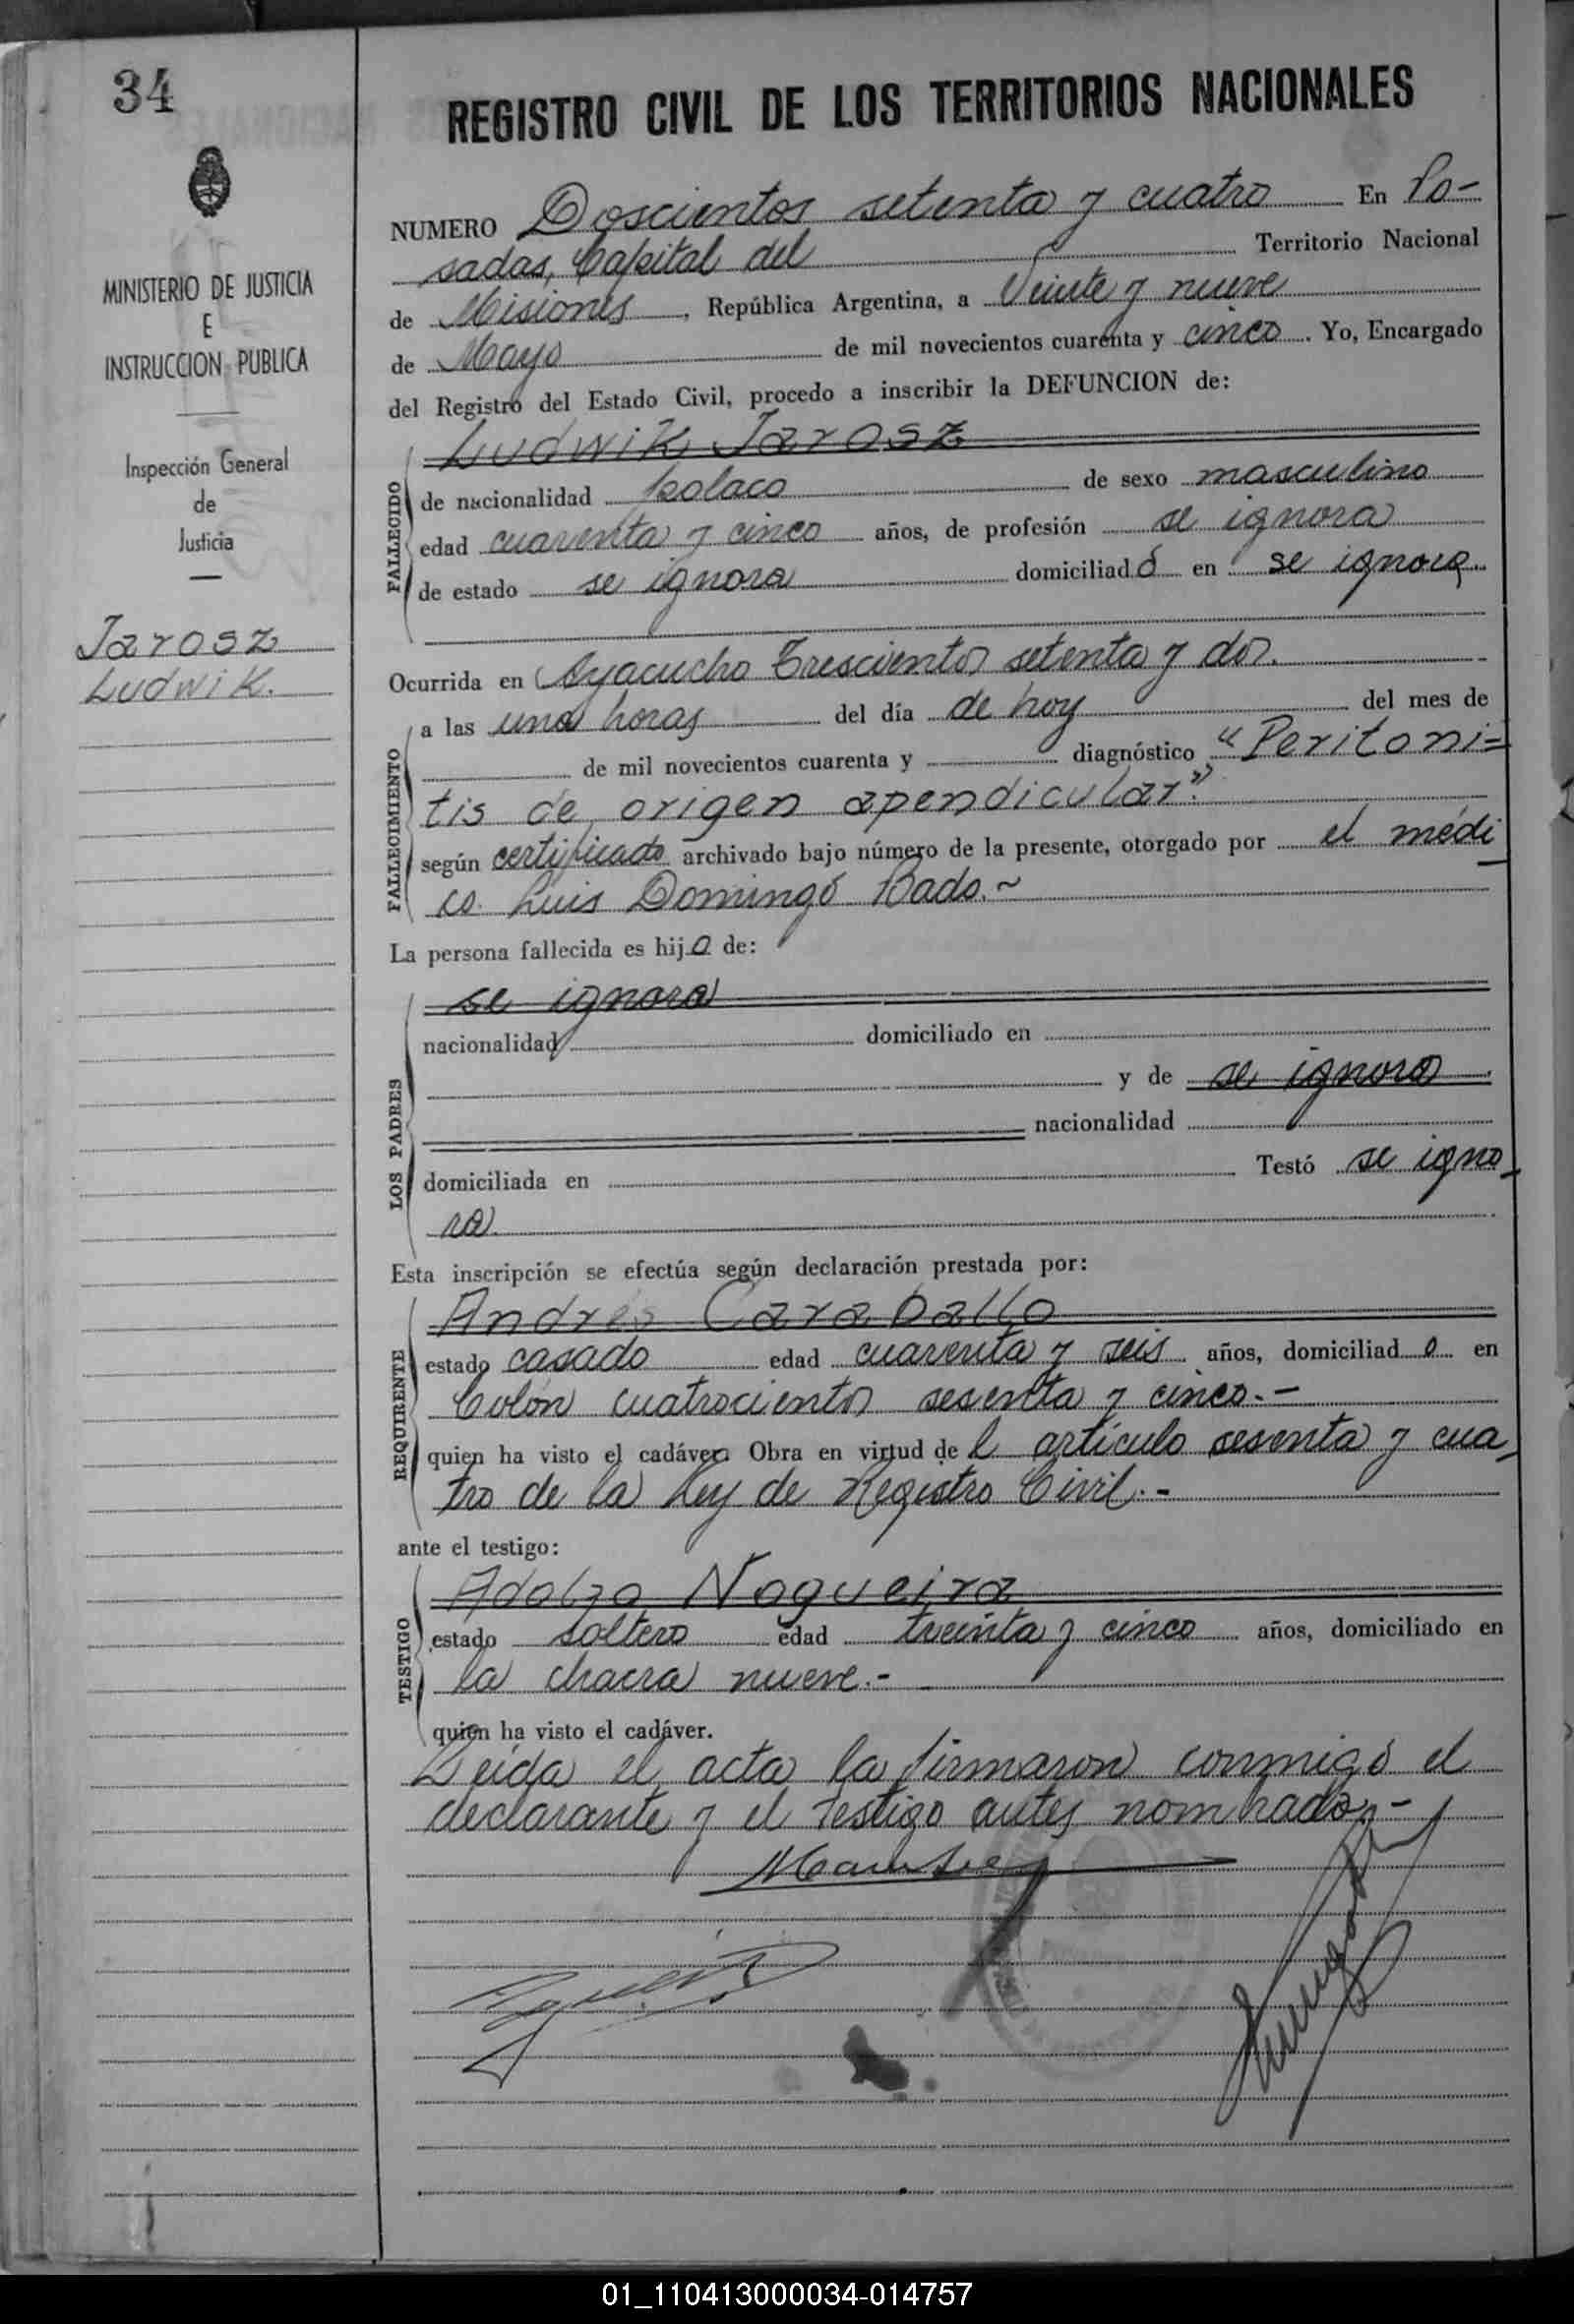 34
MINISTERIO DE JUSTICIA
E
INSTRUCCION PUBLICA
Inspección General
de
Justicia
Jarosz
Ludwik.
REGISTRO CIVIL DE LOS TERRITORIOS NACIONALES
NUMERO Doscientos setenta y cuatro En Po-
sadas, Capital del Territorio Nacional
de Misiones, República Argentina, a Veinte y nueve
de Mayo de mil novecientos cuarenta y cinco. Yo, Encargado
del Registro del Estado Civil, procedo a inscribir la DEFUNCION de:
FALLECIDO
Ludwik Jarosz
de nacionalidad polaco de sexo masculino
edad cuarenta y cinco años, de profesión se ignora
de estado se ignora domiciliado en se ignora
Ocurrida en Ayacucho Trescientos setenta y dos.
FALLECIMIENTO
a las una horas del día de hoy del mes de
de mil novecientos cuarenta y diagnóstico "Peritoni=
tis de origen apendicular".
según certificado archivado bajo número de la presente, otorgado por el médi
co Luis Domingo Bado.~
La persona fallecida es hijo de:
LOS PADRES
se ignora
nacionalidad domiciliado en
y de se ignora
nacionalidad
domiciliada en Testó se igno-
ra.
Esta inscripción se efectúa según declaración prestada por:
REQUIRENTE
Andrés Caraballo
estado casado edad cuarenta y seis años, domiciliado en
Colón cuatrocientos sesenta y cinco.-
quien ha visto el cadáver. Obra en virtud del artículo sesenta y cua-
tro de la Ley de Registro Civil.-
ante el testigo:
TESTIGO
Adolfo Nogueira
estado soltero edad treinta y cinco años, domiciliado en
la chacra nueve.-
quien ha visto el cadáver.
Leída el acta la firmaron conmigo el
declarante y el testigo antes nombrados.-
01_110413000034-014757